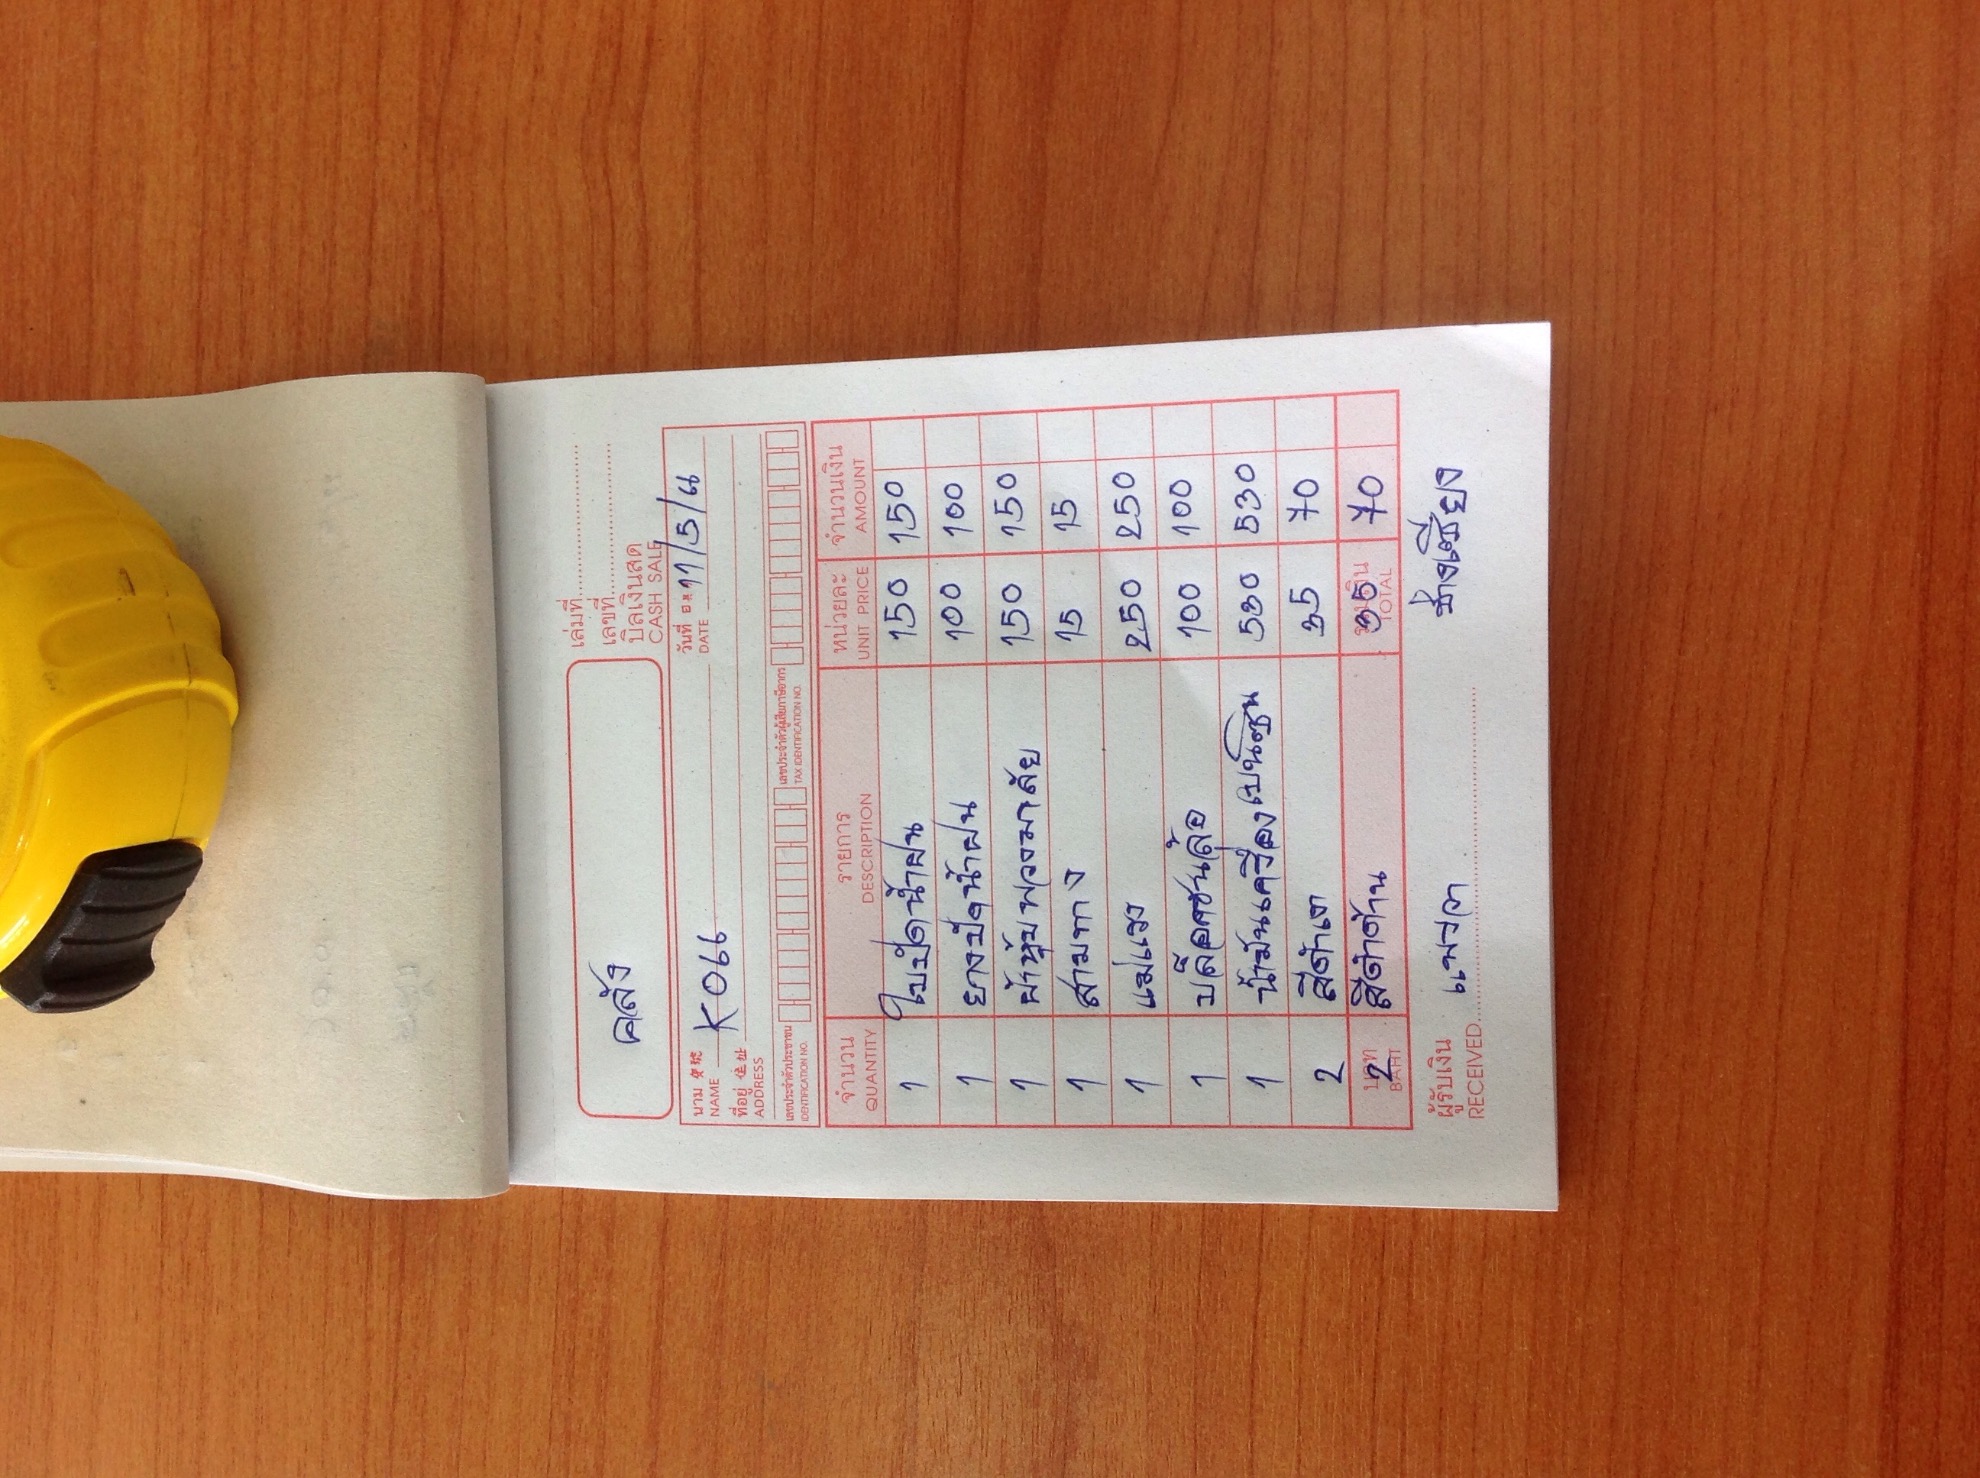 เล่มที่
เลขที่
บิลเงินสด
CASH SALE
คลัง
นาม NAME K066
วันที่ DATE 11/5/
ที่อยู่ 住址
ADDRESS
เลขประจำตัวประชาชน
IDENTIFICATION NO.
เลขประจำตัวผู้เสียภาษีอากร
TAX IDENTIFICATION NO.
จำนวน รายการ หน่วยละ จำนวนเงิน
QUANTITY DESCRIPTION UNIT PRICE AMOUNT
1 ใบปัดน้ำฝน 150 150
1 ยางปัดน้ำฝน 100 100
1 ผ้าหุ้มพวงมาลัย 150 150
1 สามทาง 15 15
1 แม่แรง 250 250
1 บล็อกขันล้อ 100 100
1 น้ำมันเครื่องเบนซิน 530 530
2 สีดำเงา 35 70
2 สีดำด้าน 35 70
บาท BAHT รวมเงิน TOTAL
ผู้รับเงิน
RECEIVED